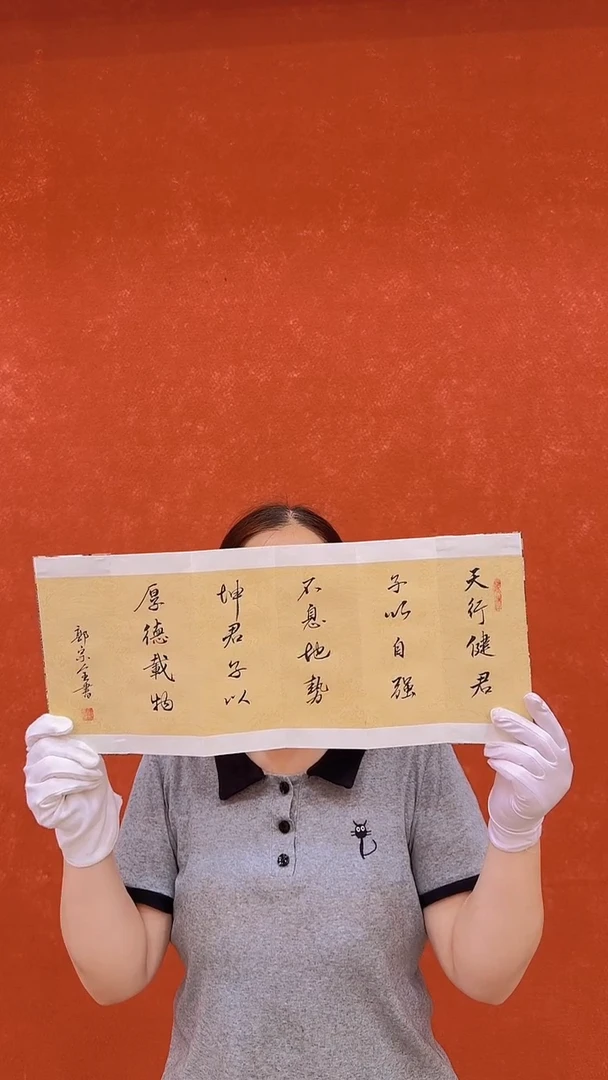 天行健君
子以自强
不息地势
坤君子以
厚德载物
郭宗金书